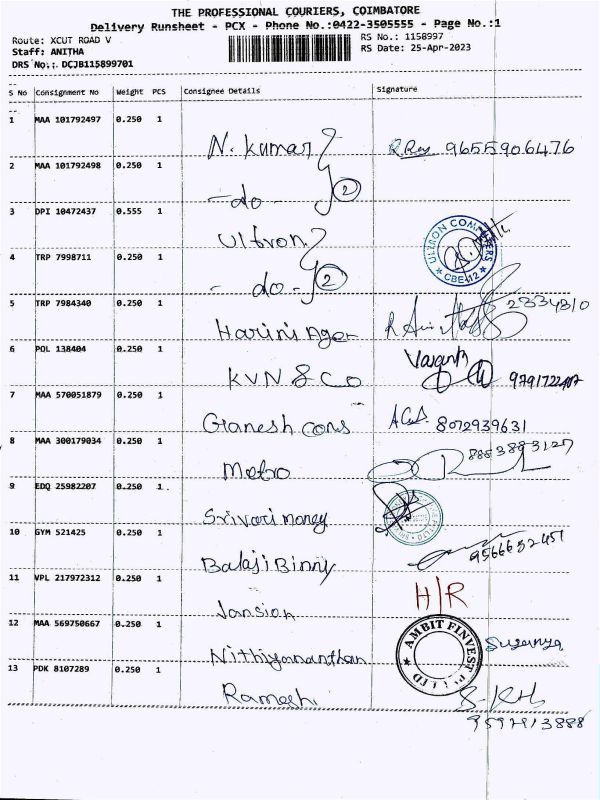 THE PROFESSIONAL COURIERS, COIMBATORE
Delivery Runsheet - PCX - Phone No.:0422-3505555 - Page No.:1
Route: XCUT ROAD V
RS No.: 1158997
Staff: ANITHA
RS Date: 25-Apr-2023
DRS No.: DCJB115899701
S No Consignment No Weight PCS Consignee Details Signature
1 MAA 101792497 0.250 1
N. Kumar 9655906476
2 MAA 101792498 0.250 1
- do - 2
3 DPI 10472437 0.555 1
Ultron ULTRON COMPUTERS CBE-12
4 TRP 7998711 0.250 1
- do - 2
5 TRP 7984340 0.250 1
Harini Agen 2334810
6 POL 138404 0.250 1
KVN & Co Vasanth
7 MAA 570051879 0.250 1
Ganesh cons 8072939631
8 MAA 300179034 0.250 1
Metro
9 EDQ 25982207 0.250 1
Srivari money
10 GYM 521425 0.250 1
Balaji Binny 9566652451
11 VPL 217972312 0.250 1
Jansion H/R
12 MAA 569750667 0.250 1
Nithiyananthan AMBIT FINVEST PVT LTD Suganya
13 PDK 8107289 0.250 1
Ramesh